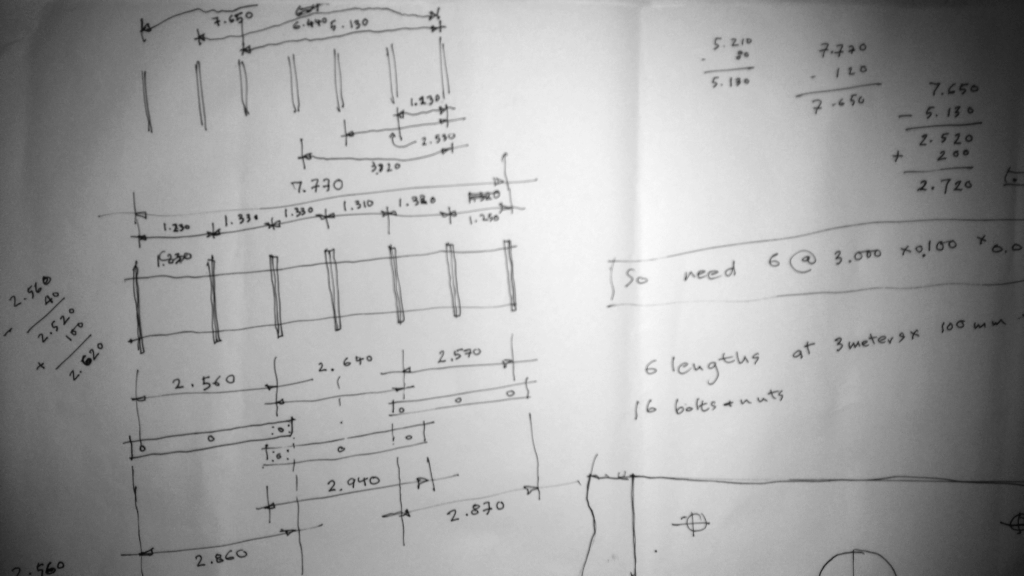 7.650
6.440 5.130
1.230
2.550
3.820
7.770
1.230 1.330 1.330 1.310 1.320 1.250
2.560 2.640 2.570
2.940
2.870
2.860
2.560
- 40
2.520
+ 100
2.620
2.560
5.210
- 80
5.130
7.770
- 120
7.650
7.650
- 5.130
2.520
+ 200
2.720
So need 6 @ 3.000 x 0.100 x 0.0
6 lengths at 3meters x 100mm
16 bolts + nuts